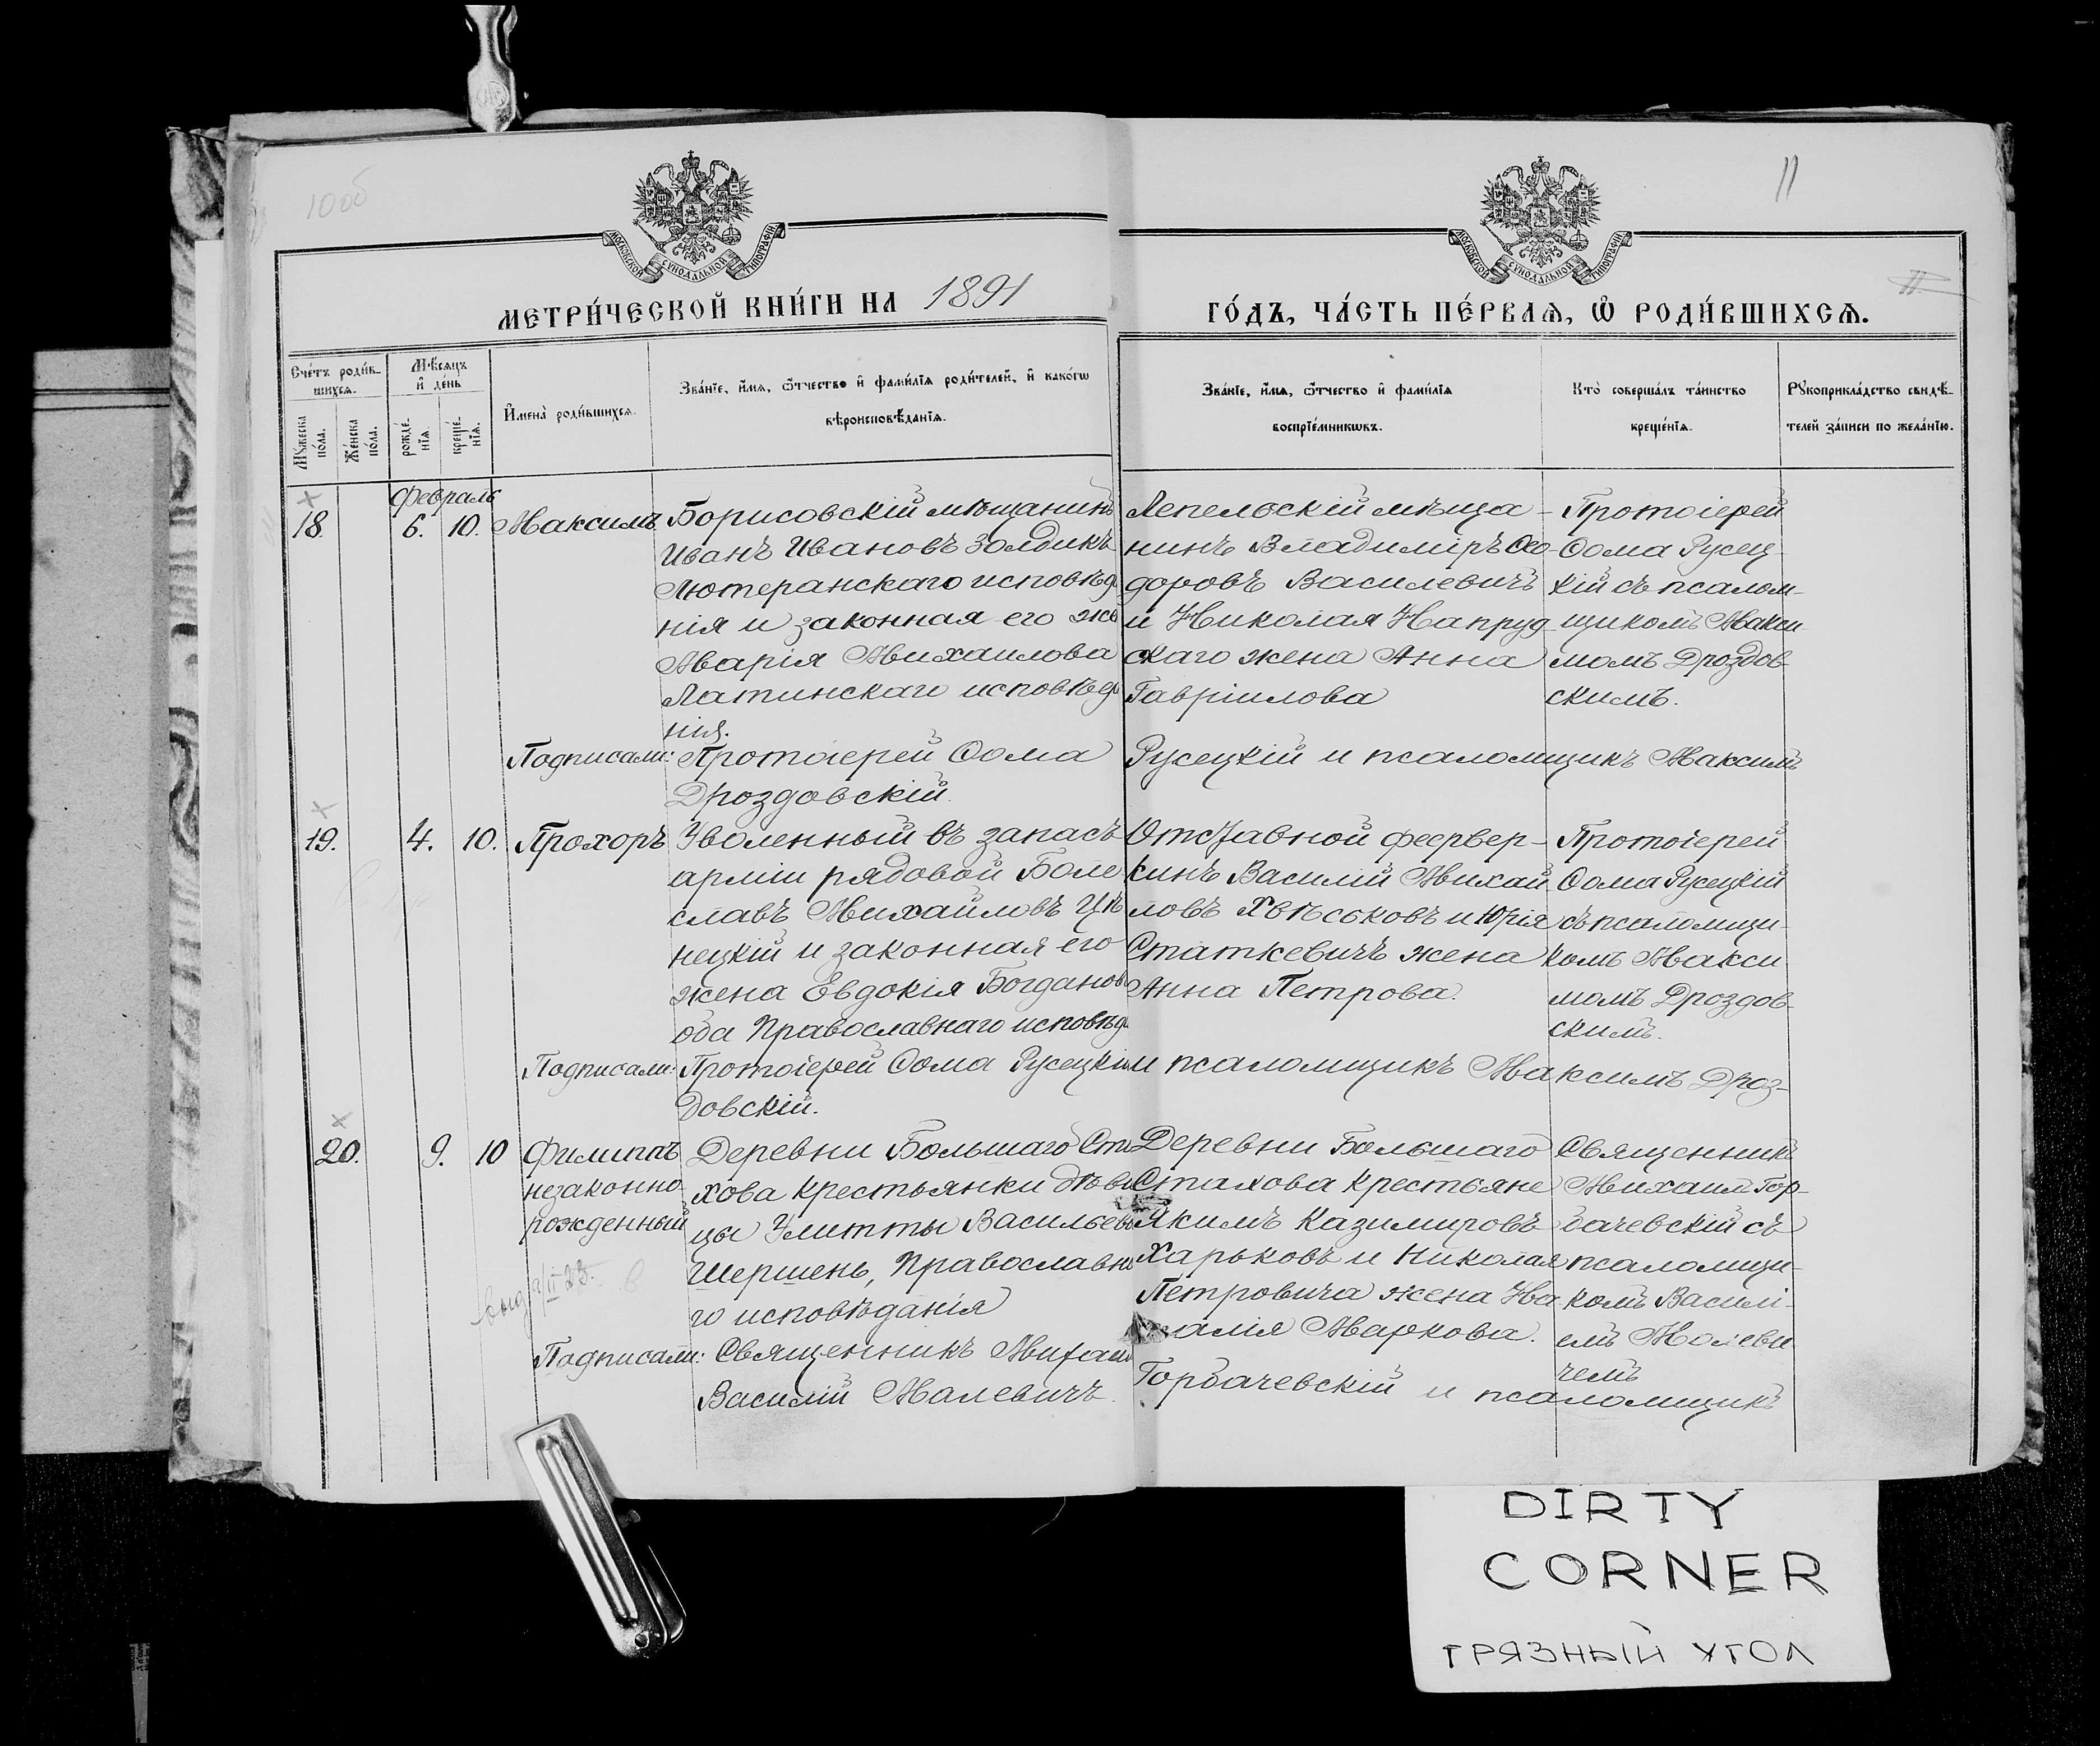 10 об
11
МОСКОВСКОЙ СѴНОДАЛЬНОЙ ТИПОГРАФІИ
МОСКОВСКОЙ СѴНОДАЛЬНОЙ ТИПОГРАФІИ
МЕТРИ́ЧЕСКОЙ КНИ́ГИ НА 1891
ГО́ДЪ, ЧА́СТЬ ПЕ́РВАѦ, Ѡ РОДИ́ВШИХСѦ.
11
Сче́тъ роди́в-
шихсѧ.
Мꙋжеска по́ла.
Же́нска по́ла.
Мѣ́сѧцъ
и҆ де́нь
рожде́-
нїѧ.
креще́-
нїѧ.
И҆мена̀ роди́вшихсѧ.
Зва́нїе, и҆́мѧ, ѻ҆́тчество и҆ фами́лїѧ роди́телей, и҆ како́гѡ
вѣроисповѣ́данїѧ.
Зва́нїе, и҆́мѧ, ѻ҆́тчество и҆ фами́лїѧ
воспрїе́мникѡвъ.
Кто̀ соверша́лъ та́инство
креще́нїѧ.
Рꙋкоприкла́дство свидѣ́-
телей за́писи по жела́нїю.
Февраль
18. 6. 10. Максимъ
Борисовскій мѣщанинъ
Иванъ Ивановъ Золдикъ
Лютеранскаго исповѣда
нія и законная его же
Марія Михаилова
Латинскаго исповѣда
нія.
Лепельскій мѣща-
нинъ Владиміръ Ѳео-
доровъ Василевичъ
и Николая Напруд-
скаго жена Анна
Гавріилова
Протоіерей
Ѳома Русец-
кій съ псалом-
щикомъ Макси
момъ Дроздов-
скимъ.
Подписали: Протоіерей Ѳома Русецкій и псаломщикъ Максимъ
Дроздовскій.
19. 4. 10. Прохоръ
Уволенный въ запасъ
арміи рядовой Боле
славъ Михайловъ Цѣ
нецкій и законная его
жена Евдокія Богданов
оба Православнаго исповѣд.
Отставной феервер-
кинъ Василій Михай
ловъ Хвѣськовъ и Юрія
Статкевичъ жена
Анна Петрова.
Протоіерей
Ѳома Русецкій
съ псаломщи-
комъ Макси
момъ Дроздов-
скимъ.
Подписали: Протоіерей Ѳома Русецкій и псаломщикъ Максимъ Дроз-
довскій.
20. 9. 10 Филиппъ
незаконно-
рожденный
Деревни Большаго Ста
хова крестьянки дѣви
цы Улитты Васильево
Шершень, Православна
го исповѣданія
Деревни Большаго
Стахова крестьяне
Якимъ Казимировъ
Харьковъ и Николая
Петровича жена На
талія Маркова.
Священникъ
Михаилъ Гор-
бачевскій съ
псаломщи-
комъ Василі-
емъ Малеви
чемъ
Подписали: Священникъ Михаилъ Горбачевскій и псаломщикъ
Василій Малевичъ.
DIRTY
CORNER
ГРЯЗНЫЙ УГОЛ